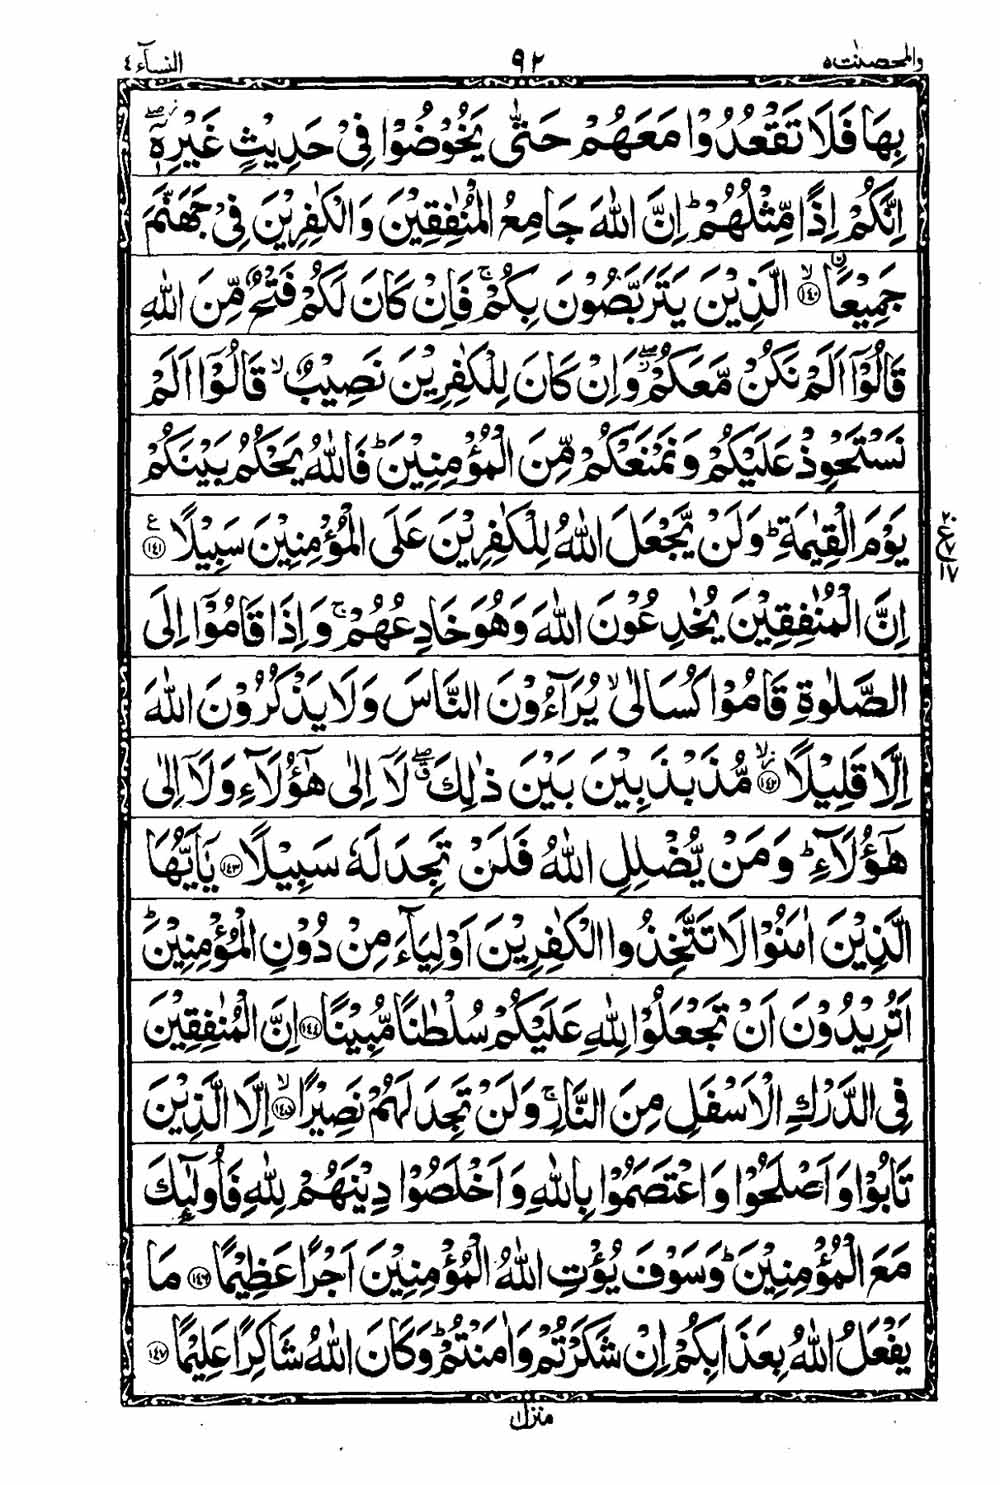 النسآء ٤ ٩٢ والمحصنت ٥
بِهَا فَلَا تَقْعُدُوْا مَعَهُمْ حَتّٰى يَخُوْضُوْا فِىْ حَدِيْثٍ غَيْرِهٖٓ
اِنَّكُمْ اِذًا مِّثْلُهُمْ ؕ اِنَّ اللّٰهَ جَامِعُ الْمُنٰفِقِيْنَ وَالْكٰفِرِيْنَ فِىْ جَهَنَّمَ
جَمِيْعًا ﴿١٤٠﴾ۙ الَّذِيْنَ يَتَرَبَّصُوْنَ بِكُمْ ۚ فَاِنْ كَانَ لَكُمْ فَتْحٌ مِّنَ اللّٰهِ
قَالُوْٓا اَلَمْ نَكُنْ مَّعَكُمْ ۖ وَاِنْ كَانَ لِلْكٰفِرِيْنَ نَصِيْبٌ ۙ قَالُوْٓا اَلَمْ
نَسْتَحْوِذْ عَلَيْكُمْ وَنَمْنَعْكُمْ مِّنَ الْمُؤْمِنِيْنَ ؕ فَاللّٰهُ يَحْكُمُ بَيْنَكُمْ
يَوْمَ الْقِيٰمَةِ ؕ وَلَنْ يَّجْعَلَ اللّٰهُ لِلْكٰفِرِيْنَ عَلَى الْمُؤْمِنِيْنَ سَبِيْلًا ﴿١٤١﴾ ع
اِنَّ الْمُنٰفِقِيْنَ يُخٰدِعُوْنَ اللّٰهَ وَهُوَ خَادِعُهُمْ ۚ وَاِذَا قَامُوْٓا اِلَى
الصَّلٰوةِ قَامُوْا كُسَالٰى ۙ يُرَآءُوْنَ النَّاسَ وَلَا يَذْكُرُوْنَ اللّٰهَ
اِلَّا قَلِيْلًا ﴿١٤٢﴾ۙ مُّذَبْذَبِيْنَ بَيْنَ ذٰلِكَ ۖ لَآ اِلٰى هٰٓؤُلَآءِ وَلَآ اِلٰى
هٰٓؤُلَآءِ ؕ وَمَنْ يُّضْلِلِ اللّٰهُ فَلَنْ تَجِدَ لَهٗ سَبِيْلًا ﴿١٤٣﴾ يٰٓاَيُّهَا
الَّذِيْنَ اٰمَنُوْا لَا تَتَّخِذُوا الْكٰفِرِيْنَ اَوْلِيَآءَ مِنْ دُوْنِ الْمُؤْمِنِيْنَ ؕ
اَتُرِيْدُوْنَ اَنْ تَجْعَلُوْا لِلّٰهِ عَلَيْكُمْ سُلْطٰنًا مُّبِيْنًا ﴿١٤٤﴾ اِنَّ الْمُنٰفِقِيْنَ
فِى الدَّرْكِ الْاَسْفَلِ مِنَ النَّارِ ۚ وَلَنْ تَجِدَ لَهُمْ نَصِيْرًا ﴿١٤٥﴾ۙ اِلَّا الَّذِيْنَ
تَابُوْا وَاَصْلَحُوْا وَاعْتَصَمُوْا بِاللّٰهِ وَاَخْلَصُوْا دِيْنَهُمْ لِلّٰهِ فَاُولٰٓئِكَ
مَعَ الْمُؤْمِنِيْنَ ؕ وَسَوْفَ يُؤْتِ اللّٰهُ الْمُؤْمِنِيْنَ اَجْرًا عَظِيْمًا ﴿١٤٦﴾ مَا
يَفْعَلُ اللّٰهُ بِعَذَابِكُمْ اِنْ شَكَرْتُمْ وَاٰمَنْتُمْ ؕ وَكَانَ اللّٰهُ شَاكِرًا عَلِيْمًا ﴿١٤٧﴾
٢٠
ع ٧
١٧
منزل ١